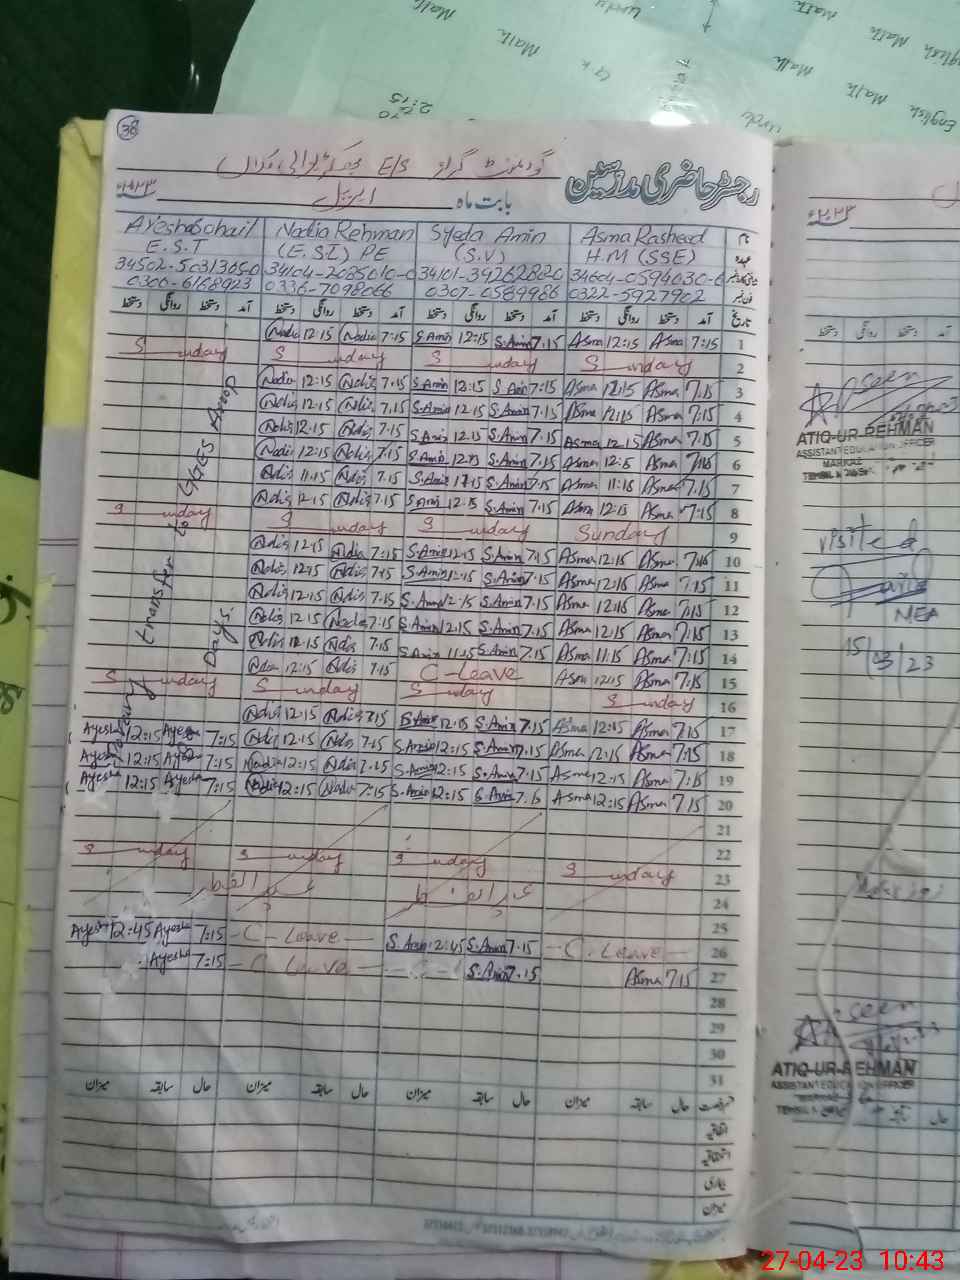 Math
Urdu
Math
Math
English
Math
Math
Math
English
Urdu
2:15
38
رجسٹر حاضری مدرسین
گورنمنٹ گرلز E/S
بابت ماہ اپریل
Ayesha Sohail Nadia Rehman Syeda Amin Asma Rasheed نام
E.S.T (E.S.E) PE (S.V) H.M (SSE) عہدہ
34502-5031305-0 34104-2085010-0 34101-3926282 34604-0594030-6
0300-6168923 0336-7098066 0307-0589986 0322-5927902 فون نمبر
دستخط روانگی دستخط آمد دستخط روانگی دستخط آمد دستخط روانگی دستخط آمد دستخط روانگی دستخط آمد تاریخ
Nadia 12:15 Nadia 7:15 S.Amin 12:15 S.Amin 7.15 Asma 12:15 Asma 7:15 1
Sunday Sunday Sunday Sunday 2
Nadia 12:15 Nadia 7.15 S.Amin 12:15 S.Amin 7:15 Asma 12:15 Asma 7.15 3
Nadia 12.15 Nadia 7.15 S.Amin 12.15 S.Amin 7.15 Asma 12:15 Asma 7:15 4
Nadia 12.15 Nadia 7:15 S.Amin 12.15 S.Amin 7.15 Asma 12:15 Asma 7.15 5
Nadia 12:15 Nadia 7:15 S.Amin 12:15 S.Amin 7.15 Asma 12:15 Asma 7:15 6
Nadia 11.15 Nadia 7.15 S.Amin 11:15 S.Amin 7.15 Asma 11:15 Asma 7.15 7
Nadia 12.15 Nadia 7.15 S.Amin 12:15 S.Amin 7.15 Asma 12:15 Asma 7:15 8
Sunday Sunday Sunday Sunday 9
Nadia 12:15 Nadia 7:15 S.Amin 12:15 S.Amin 7:15 Asma 12:15 Asma 7:15 10
Nadia 12:15 Nadia 7:15 S.Amin 12:15 S.Amin 7.15 Asma 12:15 Asma 7.15 11
Nadia 12:15 Nadia 7.15 S.Amin 12:15 S.Amin 7.15 Asma 12:15 Asma 7:15 12
Nadia 12:15 Nadia 7:15 S.Amin 12.15 S.Amin 7.15 Asma 12:15 Asma 7:15 13
Nadia 12.15 Nadia 7.15 S.Amin 11:15 S.Amin 7.15 Asma 11:15 Asma 7:15 14
Nadia 12:15 Nadia 7.15 C-Leave Asma 12:15 Asma 7:15 15
Sunday Sunday Sunday Sunday 16
Ayesha 12:15 Ayesha 7:15 Nadia 12:15 Nadia 7:15 S.Amin 12:15 S.Amin 7.15 Asma 12:15 Asma 7.15 17
Ayesha 12:15 Ayesha 7:15 Nadia 12:15 Nadia 7.15 S.Amin 12:15 S.Amin 7.15 Asma 12:15 Asma 7:15 18
Ayesha 12:15 Ayesha 7:15 Nadia 12:15 Nadia 7.15 S.Amin 12:15 S.Amin 7.15 Asma 12:15 Asma 7:15 19
Nadia 12:15 Nadia 7:15 S.Amin 12:15 S.Amin 7.15 Asma 12:15 Asma 7.15 20
transfer to GGES
Days.
21
22
Sunday Sunday Sunday Sunday 23
عید الفطر عید الفطر 24
25
Ayesha 12:45 Ayesha 7:15 C-Leave S.Amin 12:45 S.Amin 7.15 C-Leave 26
Ayesha 7:15 C Leave S.Amin 7.15 Asma 7:15 27
28
29
30
31
میزان سابقہ حال میزان سابقہ حال میزان سابقہ حال میزان سابقہ حال
اتفاقیہ
بیماری
میزان
دستخط روانگی دستخط آمد
Seen
ATIQ-UR-REHMAN
ASSISTANT EDUCATION OFFICER
MARKAZ
visited
MEA
15/03/23
Seen
ATIQ-UR-REHMAN
ASSISTANT EDUCATION OFFICER
حال
27-04-23 10:43